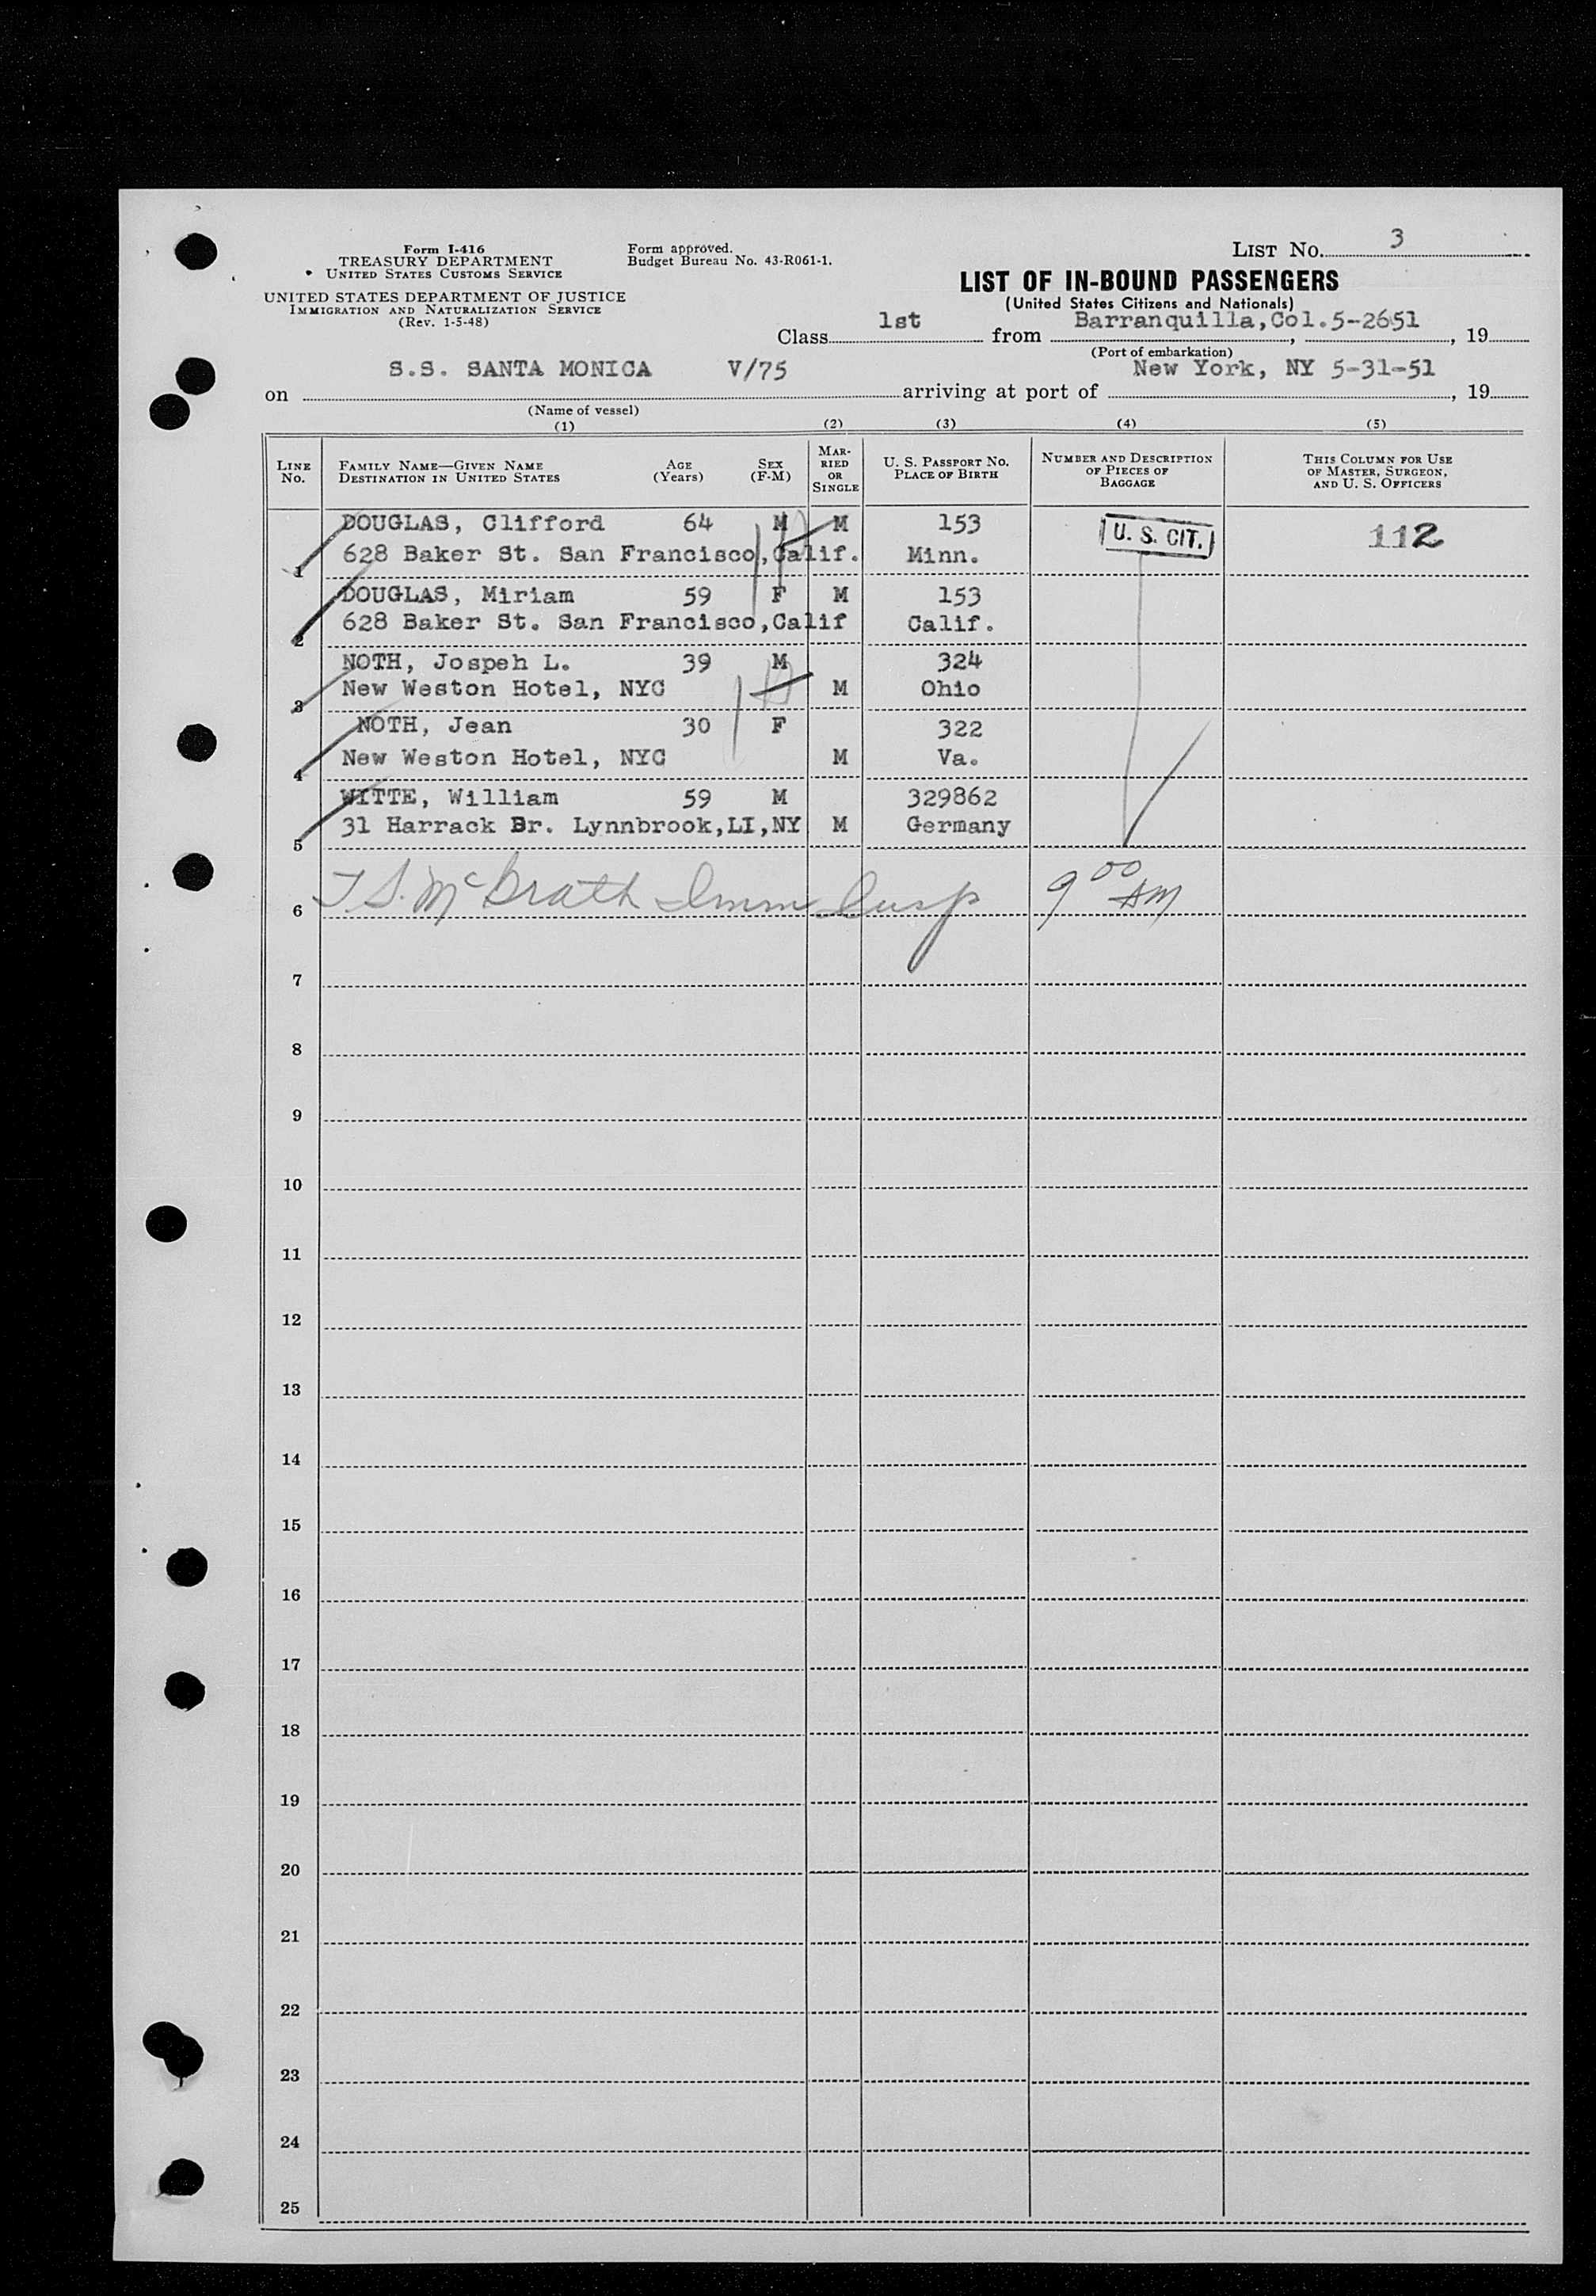 Form I-416
TREASURY DEPARTMENT
UNITED STATES CUSTOMS SERVICE
UNITED STATES DEPARTMENT OF JUSTICE
IMMIGRATION AND NATURALIZATION SERVICE
(Rev. 1-5-48)
Form approved.
Budget Bureau No. 43-R061-1.
LIST No. 3
LIST OF IN-BOUND PASSENGERS
(United States Citizens and Nationals)
Class 1st from Barranquilla,Col.5-2651, 19
(Port of embarkation)
on S.S. SANTA MONICA V/75 arriving at port of New York, NY 5-31-51, 19
(Name of vessel)
(1) (2) (3) (4) (5)
LINE No. FAMILY NAME—GIVEN NAME DESTINATION IN UNITED STATES AGE (Years) SEX (F-M) MARRIED OR SINGLE U. S. PASSPORT NO. PLACE OF BIRTH NUMBER AND DESCRIPTION OF PIECES OF BAGGAGE THIS COLUMN FOR USE OF MASTER, SURGEON, AND U. S. OFFICERS
DOUGLAS, Clifford 64 M M 153 U. S. CIT. 112
1 628 Baker St. San Francisco,Calif. Minn.
DOUGLAS, Miriam 59 F M 153
2 628 Baker St. San Francisco,Calif Calif.
NOTH, Jospeh L. 39 M 324
3 New Weston Hotel, NYC M Ohio
NOTH, Jean 30 F 322
4 New Weston Hotel, NYC M Va.
WITTE, William 59 M 329862
5 31 Harrack Dr. Lynnbrook,LI,NY M Germany
6 T.S. McGrath Imm Insp 9 00 AM
7
8
9
10
11
12
13
14
15
16
17
18
19
20
21
22
23
24
25